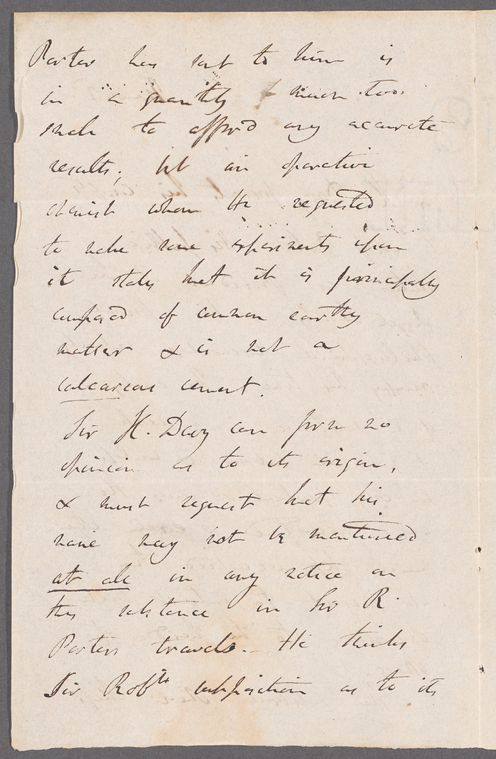 Porter has sent to him is
in a quantity much too
small to afford any accurate
results; but an operative
chemist whom He requested
to make some experiments upon
it states that it is principally
composed of common earthy
matter & is not a
calcareous cement.
Sir H. Davy can form no
opinion as to its origin,
& must request that his
name may not be mentioned
at all in any notice on
this substance in Sir R.
Porters travels. He thinks
Sir Robts supposition as to its